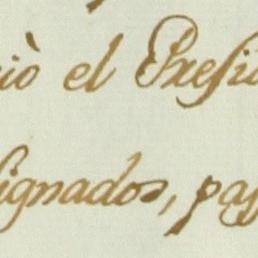 iò el Presi
signados, pas